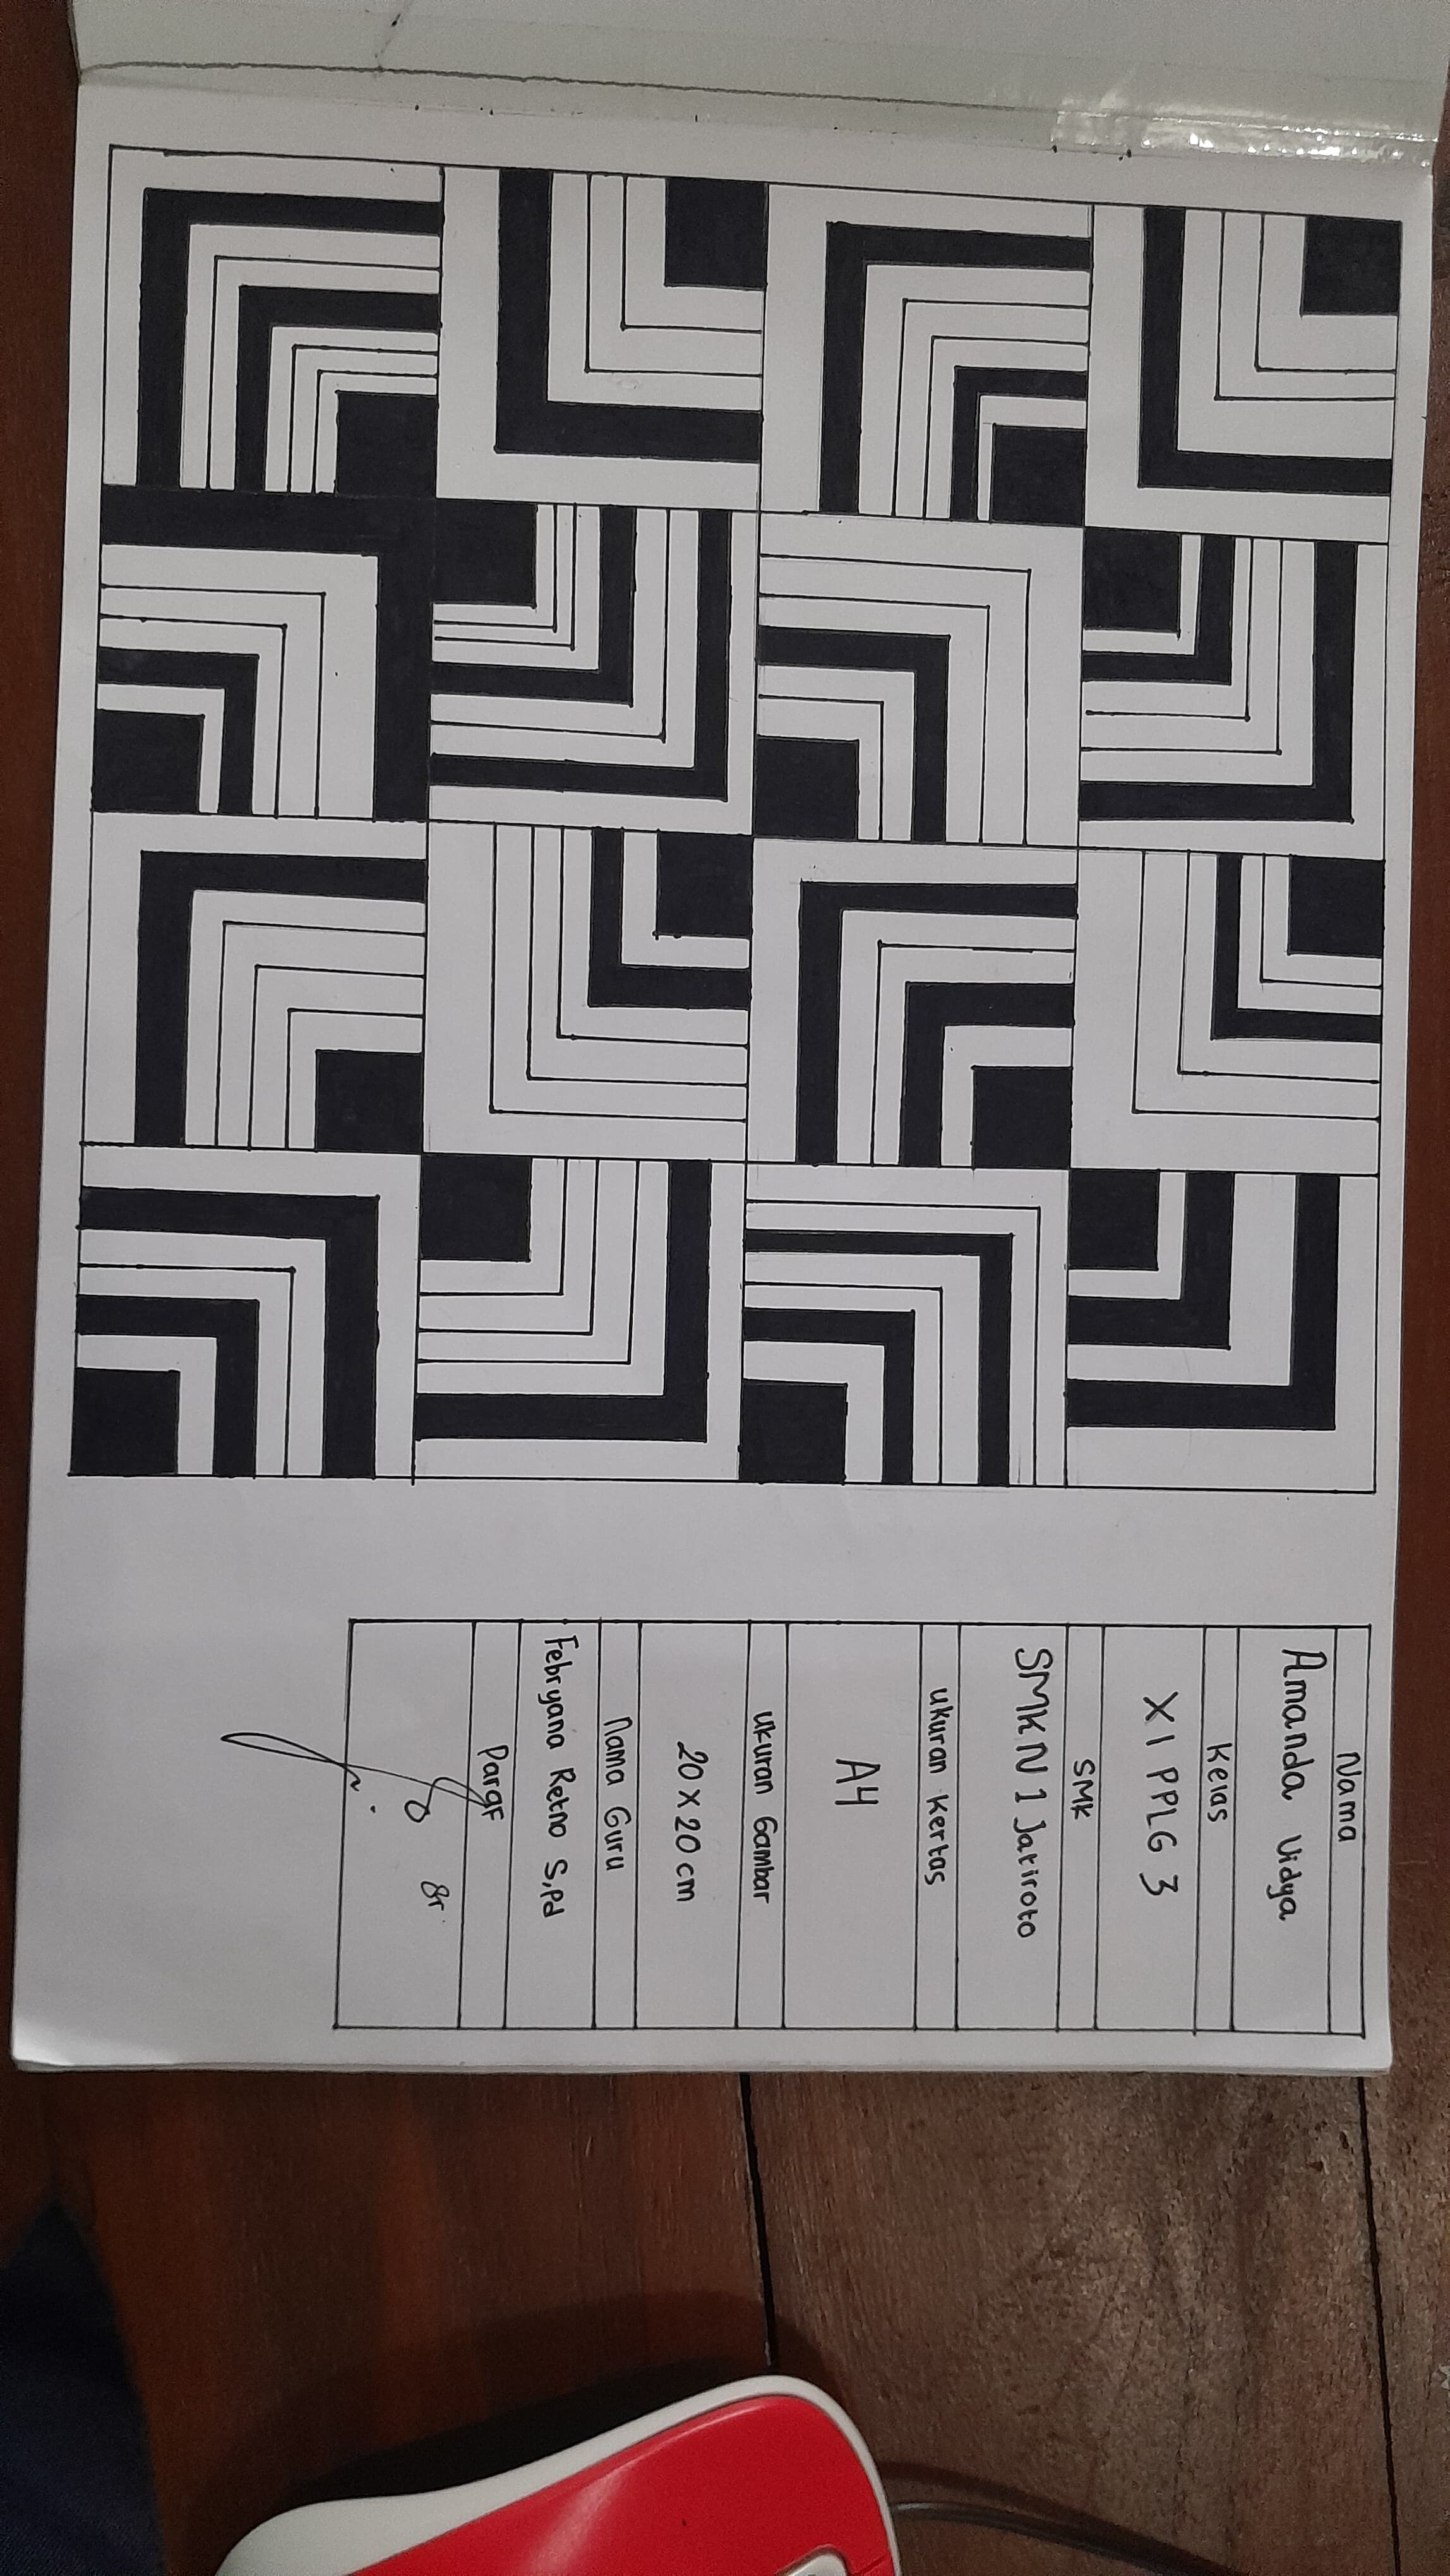 Nama
Amanda Vidya
Kelas
XI PPLG 3
SMK
SMKN 1 Jatiroto
Ukuran Kertas
A4
Ukuran Gambar
20 x 20 cm
Nama Guru
Febryana Retno S,Pd
Paraf